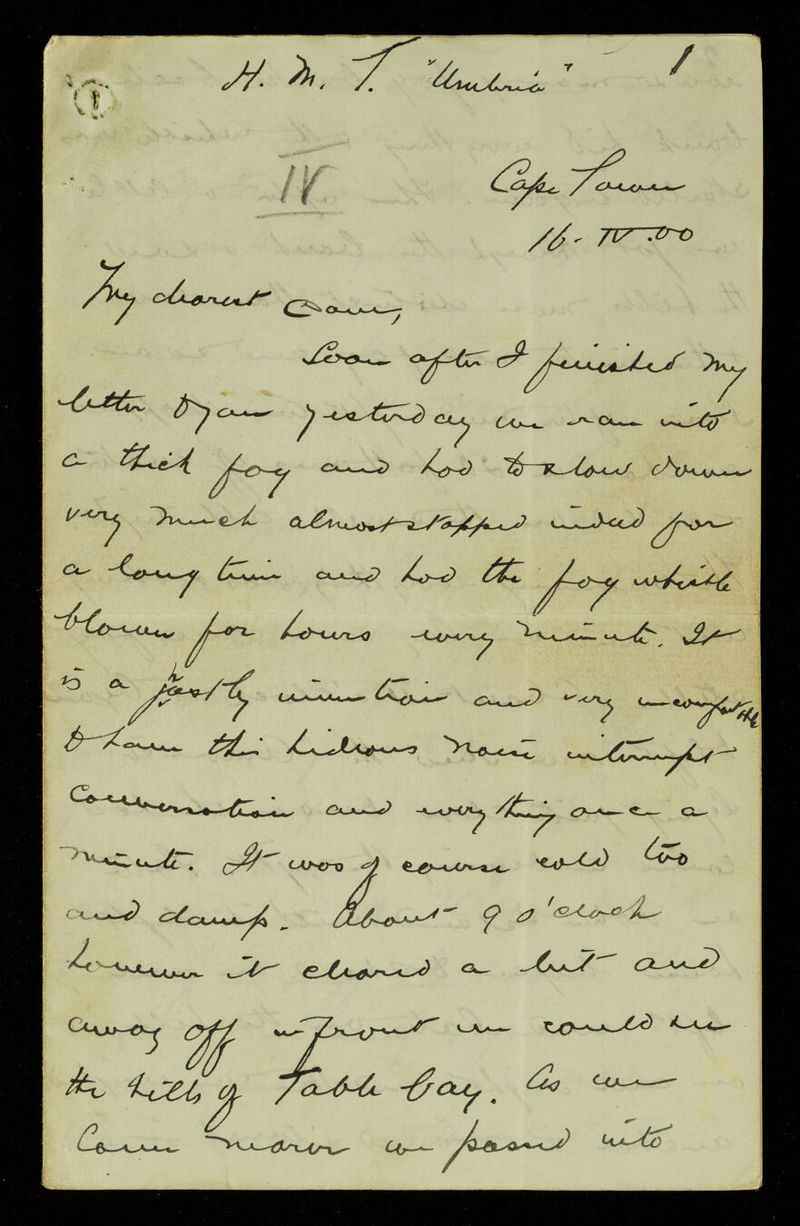 1
H. M. T. "Umbria"
1
IV
Cape Town
16. IV. 00
My dearest
Soon after I finished my
letter to you yesterday we ran into
a thick fog and had to slow down
very much almost stopped indeed for
a long time and had the fog whistle
blown for hours every minute. It
is a invention and very uncomfortable
to have this hideous noise interrupt
conversation and every thing once a
minute. It was of course cold too
and damp. About 9 o'clock
however it cleared a bit and
away off in front we could see
the hills of Table bay. As we
came nearer we passed into